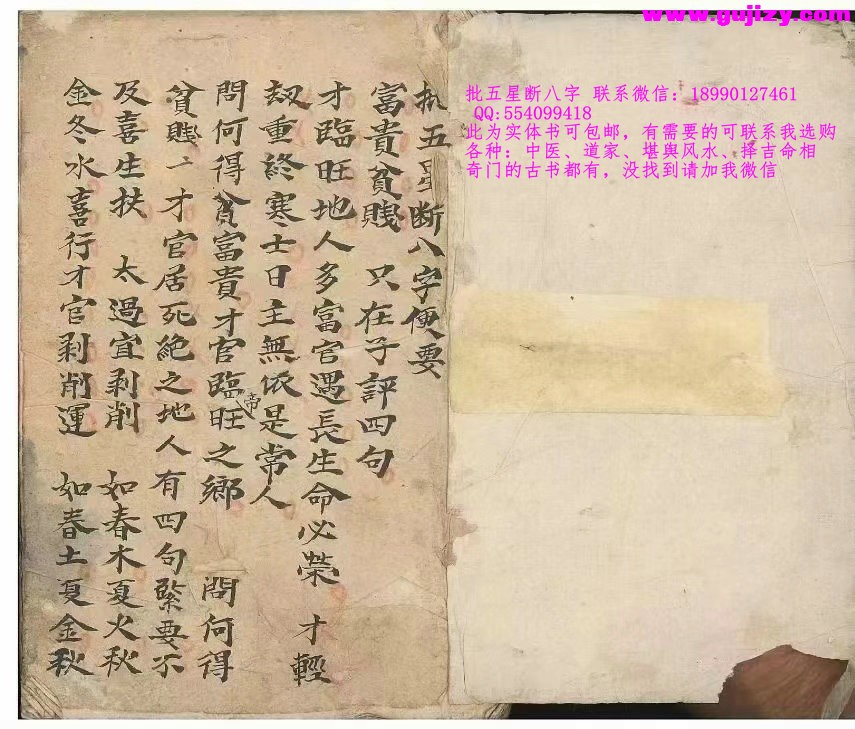 www.gujizy.com
批五星断八字 联系微信：18990127461
QQ:554099418
此为实体书可包邮，有需要的可联系我选购
各种：中医、道家、堪舆风水、择吉命相
奇门的古书都有，没找到请加我微信
批五星断八字便要
富貴貧賤 只在子評四句
才臨旺地人多富官遇長生命必荣 才輕
刼重終寒士日主無依是常人
問何得貧富貴才官臨帝旺之鄉 問何得
貧賤〻才官居死絶之地人有四句緊要不
及喜生扶 太過宜剥削 如春木夏火秋
金冬水喜行才官剥削運 如春土夏金秋